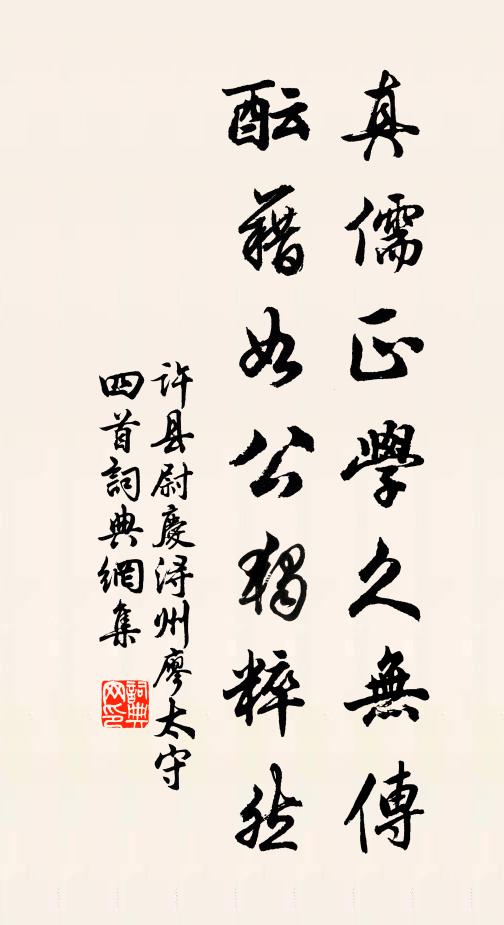 真儒正學久無傳
醞藉如公獨粹然
許县尉慶潯州廖太守
四首詞典網集
詞典網印